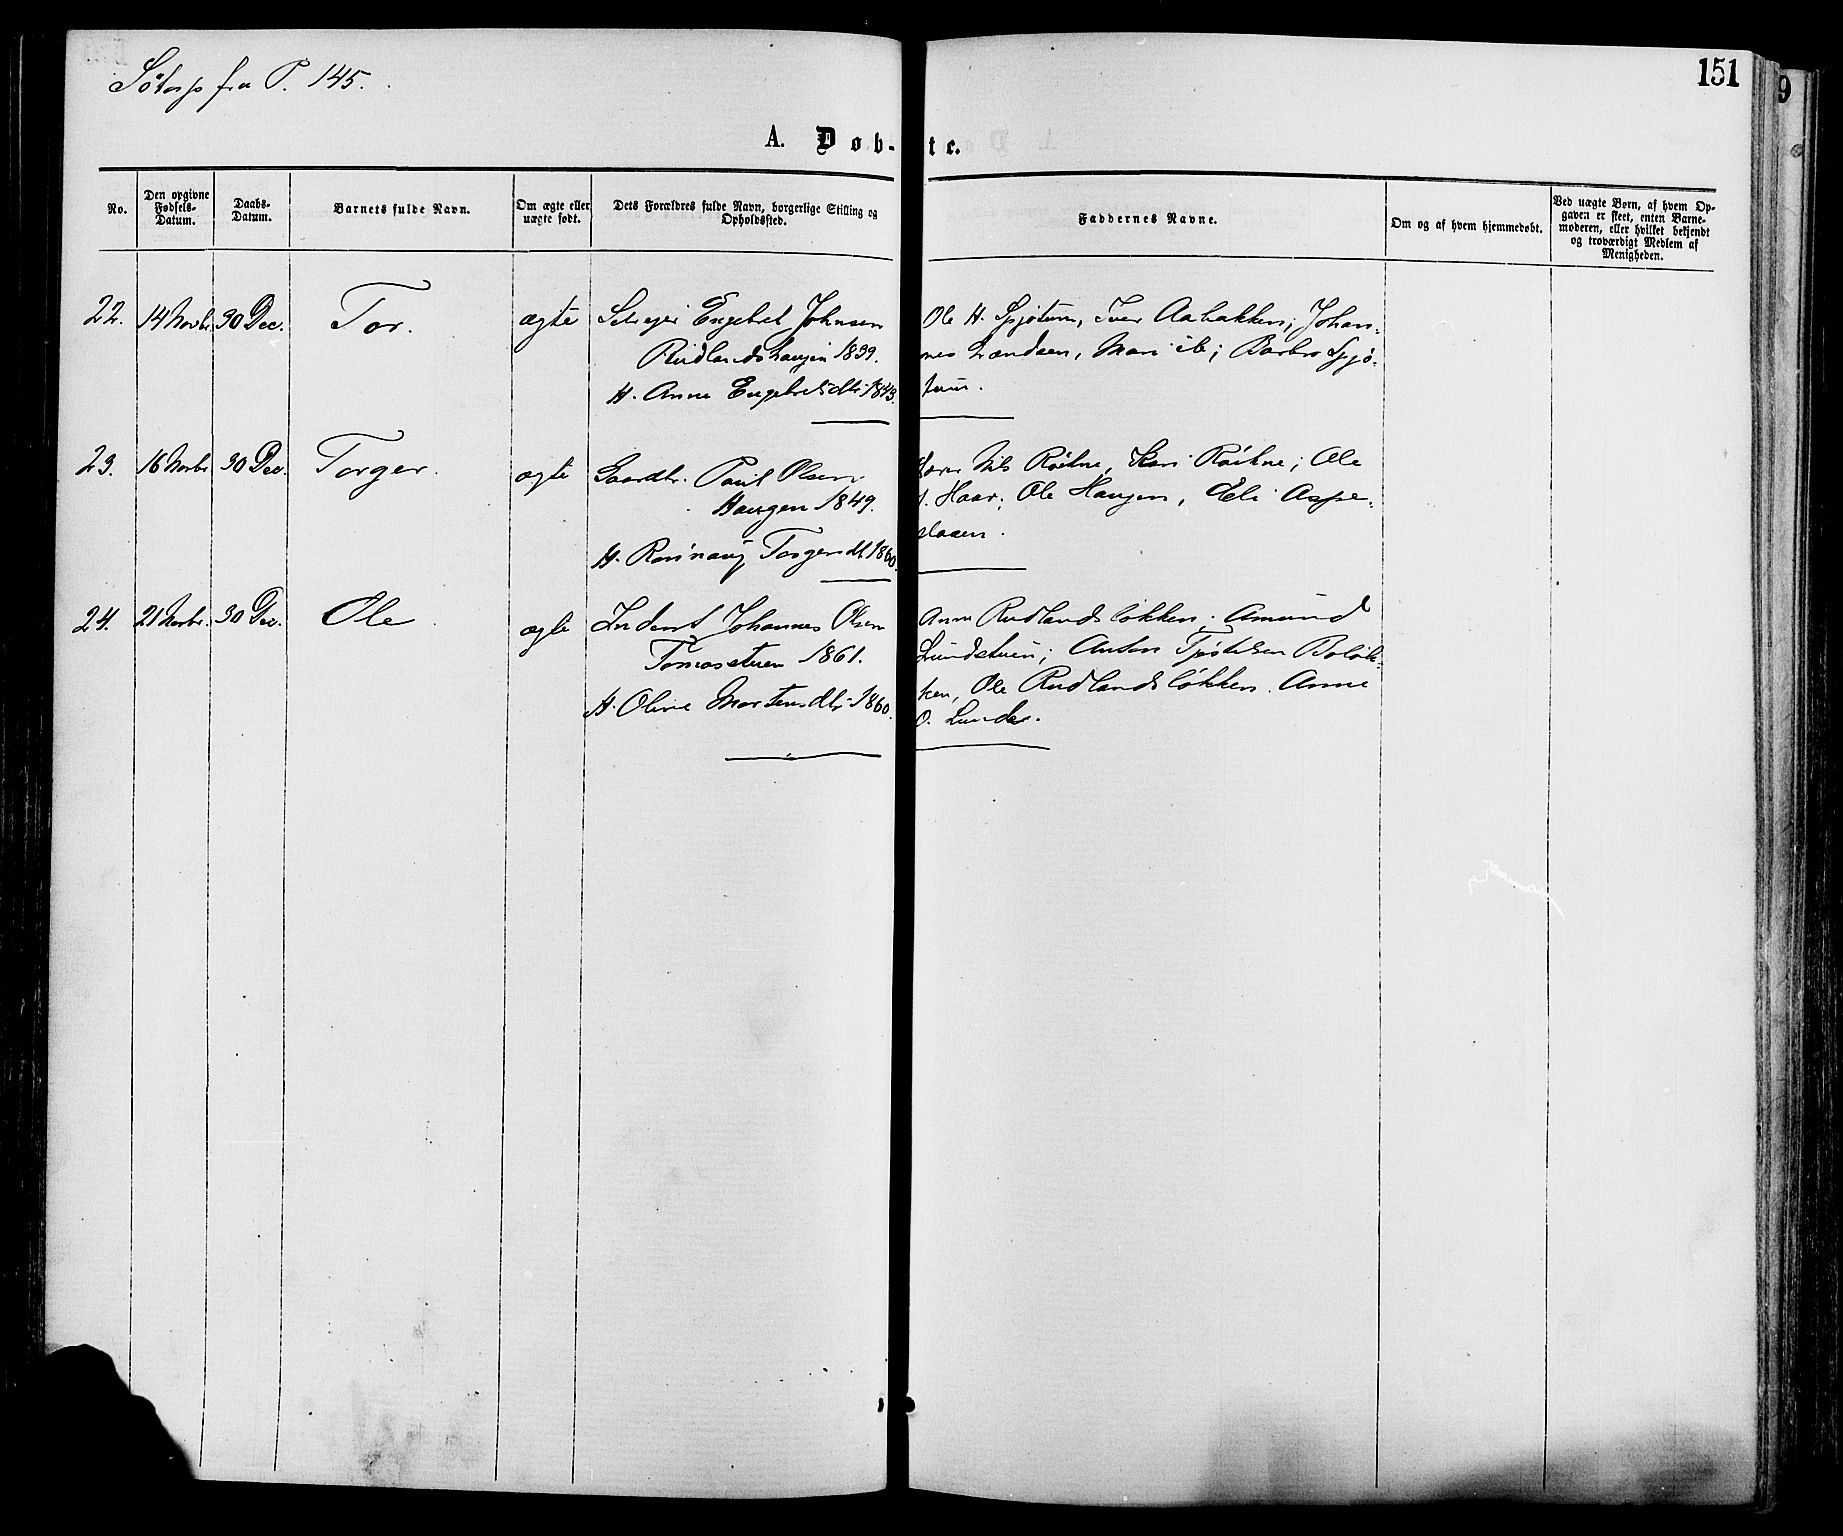 Sötorp fra P. 145.
151
9
A. Døb-te.
No.
Den opgivne Fødsels-Datum.
Daabs-Datum.
Barnets fulde Navn.
Om ægte eller uægte født.
Dets Forældres fulde Navn, borgerlige Stilling og Opholdssted.
Faddernes Navne.
Om og af hvem hjemmedøbt.
Ved uægte Børn, af hvem Op-
gaven er skeet, enten Barne-
moderen, eller hvilket bekjendt
og troværdigt Medlem af
Menigheden.
22. 14 Novbr. 30 Dec. Tor. ægte Selvejer Engebret Johnsen
Rudlandshaugen 1839.
H. Anne Engebretsdtr. 1843.
Ole H. Sjøtum, Iver Aabakken; Johan-
nes Trondsen, Mari ib; Barbro Sjø-
tum.
23. 16 Novbr 30 Dec. Torger. ægte Gaardbr. Paul Olsen
Haugen 1849.
H. Rønnaug Torgersdt. 1860.
Nils Røikne, Kari Røikne; Ole
Haar; Ole Haugen, Eli Aspe-
slaaen.
24. 21 Novbr. 30 Dec. Ole ægte Inderst Johannes Olsen
Tomasstuen 1861.
H. Oline Mortensdtr. 1860.
Anne Rudlandsløkken. Amund
Lundstuen; Anton Tjøstelsen Boløk-
ken, Ole Rudlandsløkken. Anne
O. Lunde.